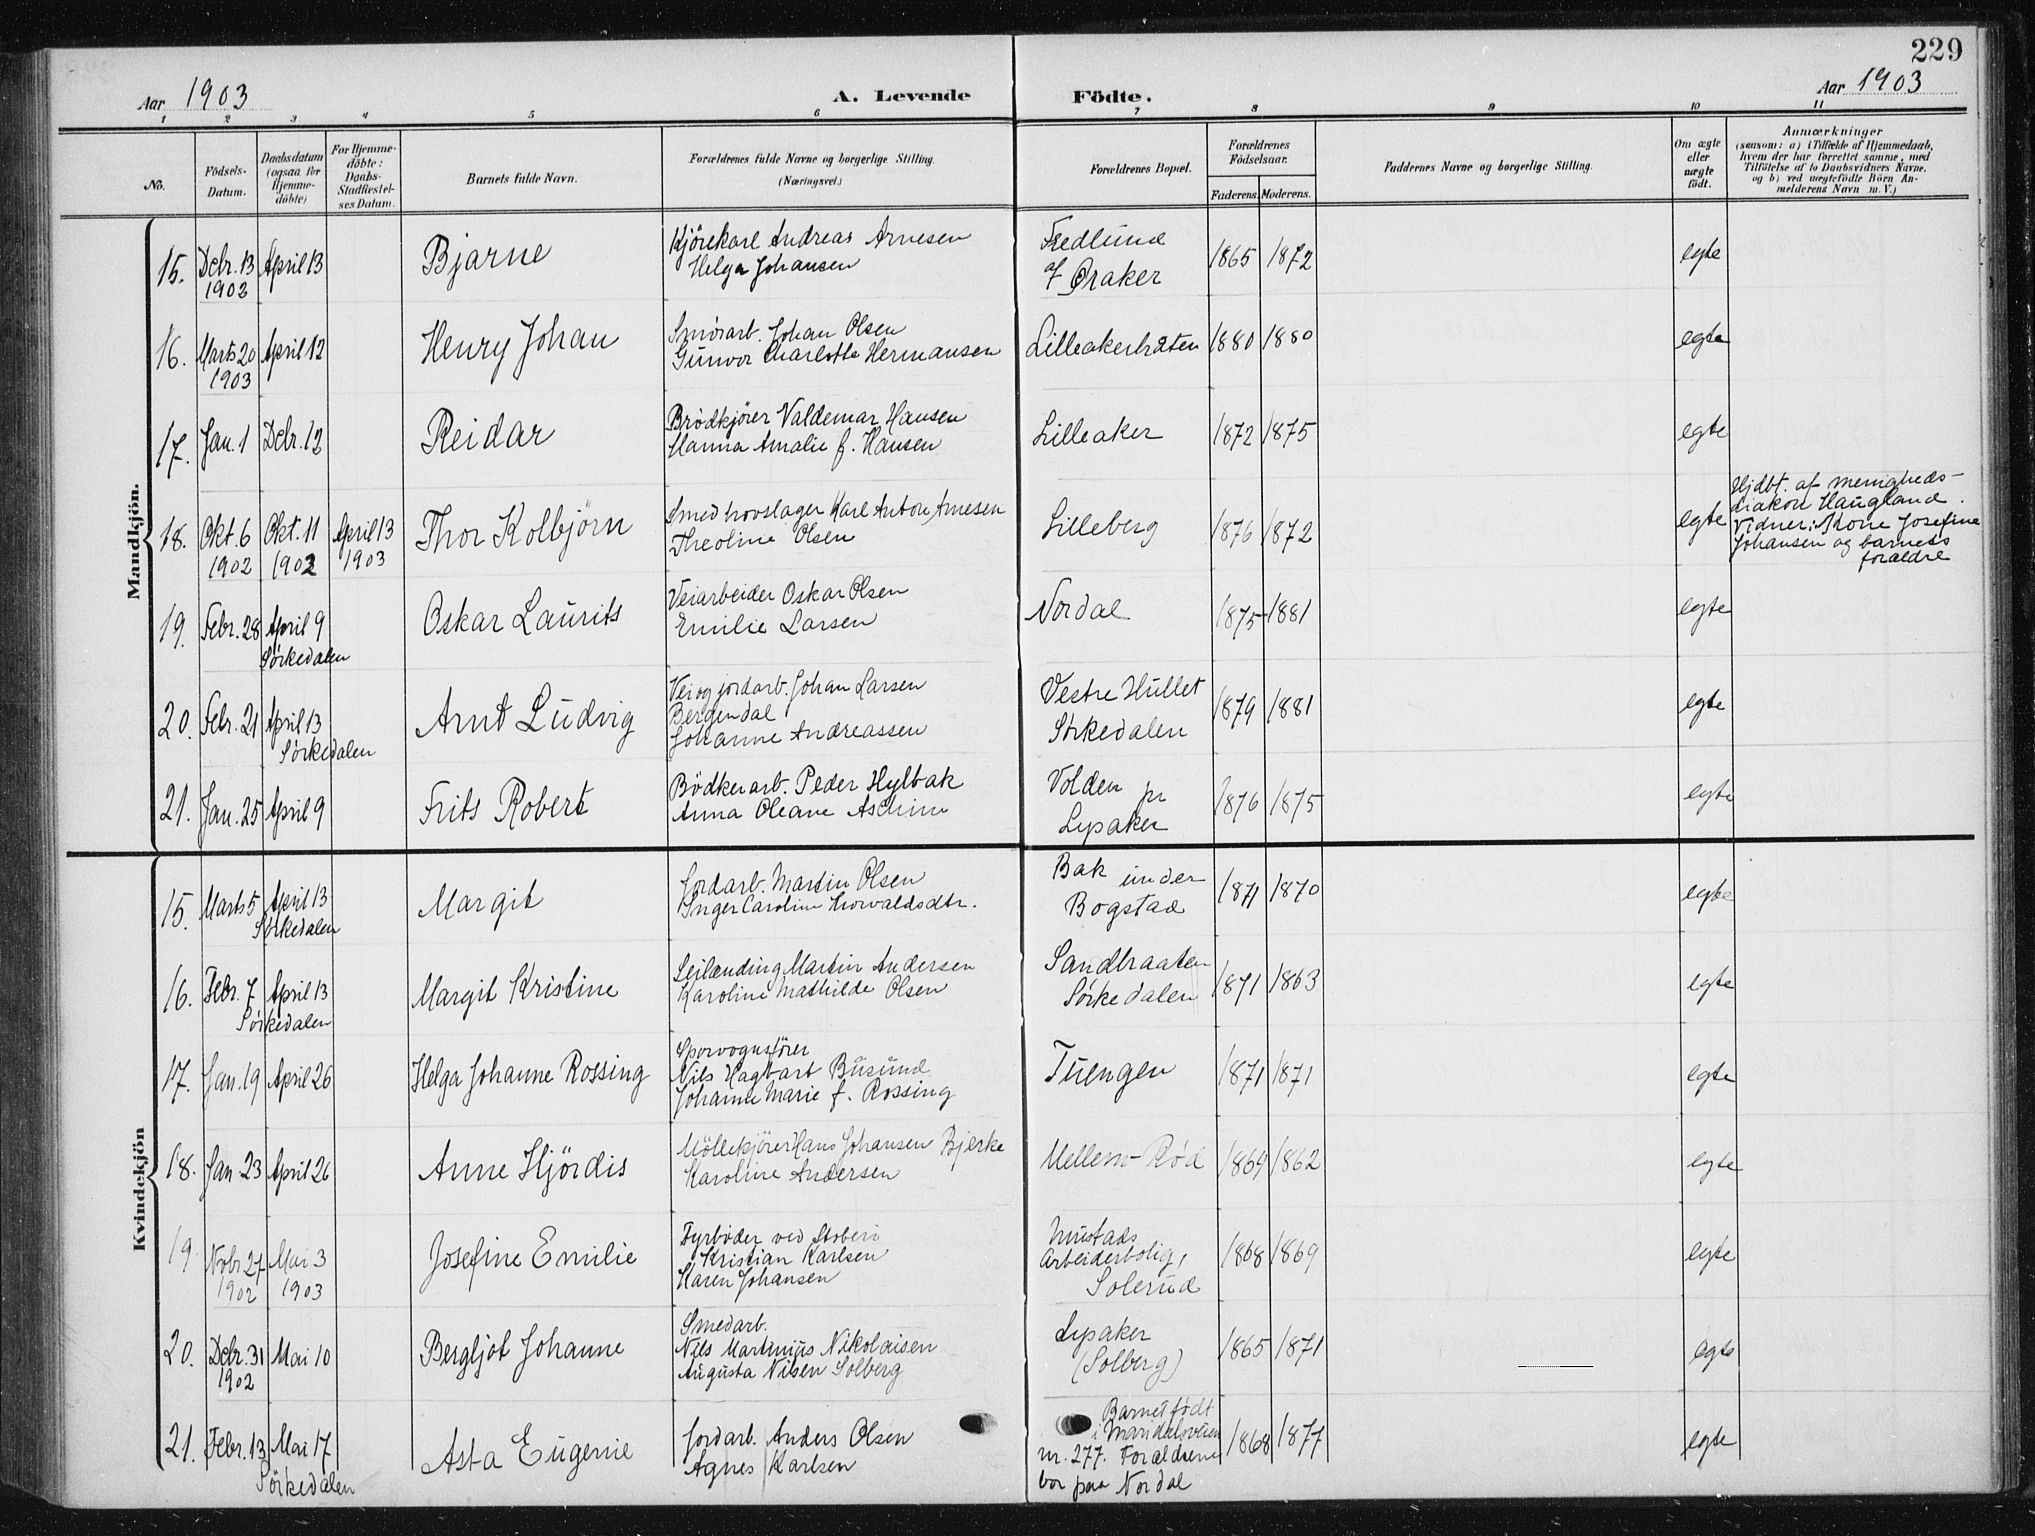 229
Aar 1903
A. Levende Födte.
Aar 1903
1 2 3 4 5 6 7 8 9 10 11
No.
Födsels-
Datum.
Daabsdatum
(ogsaa for
Hjemme-
döbte)
For Hjemme-
döbte:
Daabs-
Stadfæstel-
ses Datum.
Barnets fulde Navn.
Forældrenes fulde Navne og borgerlige Stilling.
(Næringsvei.)
Forældrenes Bopæl.
Forældrenes
Födselsaar.
Faderens. Moderens.
Faddernes Navne og borgerlige Stilling.
Om ægte
eller
uægte
födt.
Anmærkninger
(saasom: a) i Tilfælde af Hjemmedaab,
hvem der har forrettet samme, med
Tilföielse af to Daabsvidners Navne,
og b) ved uægtefödte Börn An-
melderens Navn m. V.)
Mandkjön.
15. Debr. 13 1902 April 13 Bjarne
Kjörekarl Andreas Arnesen
Helga Johansen
Fredlund
af Øraker
1865 1872 egte
16. Marts 20 1903 April 12 Henry Johan
Smörarb. Johan Olsen
Gunvor Charlotte Hermansen
Lilleakerbråten 1880 1880 egte
17. Jan. 1 Debr. 12 Reidar
Brödkjörer Valdemar Hansen
Hanna Amalie f. Hansen
Lilleaker 1872 1875 egte
18. Okt. 6 1902 Okt. 11 1902 April 13 1903 Thor Kolbjörn
Smed hovslager Karl Anton Arnesen
Theoline Olsen
Lilleberg 1876 1872 egte
Hjdbt. af menigheds-
diakon Haugland.
Vidner: Kone Josefine
Johansen og barnets
forældre
19. Febr. 28 April 9 Sörkedalen Oskar Laurits
Veiarbeider Oskar Olsen
Emilie Larsen
Nordal 1875 1881 egte
20. Febr. 21 April 13 Sörkedalen Arnt Ludvig
Vei og jordarb. Johan Larsen
Bergendal
Johanne Andreassen
Vestre Hullet
Sörkedalen
1879 1881 egte
21. Jan. 25 April 9 Frits Robert
Bödkerarb. Peder Hylbak
Anna Oleane Aschim
Volden pr
Lysaker
1876 1875 egte
Kvindekjön
15. Marts 5 April 13 Sörkedalen Margit
Jordarb. Martin Olsen
Inger Caroline Horvaldsdtr.
Bak under
Bogstad
1871 1870 egte
16. Febr. 7 April 13 Sörkedalen Margit Kristine
Leilænding Martin Andersen
Karoline Mathilde Olsen
Sandbraaten
Sörkedalen
1871 1863 egte
17. Jan. 19 April 26 Helga Johanne Rossing
Sporvognsförer
Nils Hagbart Busund
Johanne Marie f. Rossing
Tuengen 1871 1871 egte
18. Jan 23 April 26 Anne Hjördis
Möllekjörer Hans Johansen Bjerke
Karoline Andersen
Mellem-Röd 1864 1862 egte
19. Nobr. 27 1902 Mai 3 1903 Josefine Emilie
Fyrböder ved Stoberi
Kristian Karlsen
Karen Johansen
Mustads
Arbeiderbolig,
Solerud
1868 1869 egte
20. Debr. 31 1902 Mai 10 Bergljot Johanne
Smedarb.
Nils Martinius Nikolaisen
Augusta Nilsen Solberg
Lysaker
(Solberg)
1865 1871 egte
21. Febr. 13 Mai 17 Sörkedalen Asta Eugenie
Jordarb. Anders Olsen
Agnes Karlsen
Barnet födt
i Maridalsveien
nr. 277. Forældrene
bor paa Nordal
1868 1877 egte